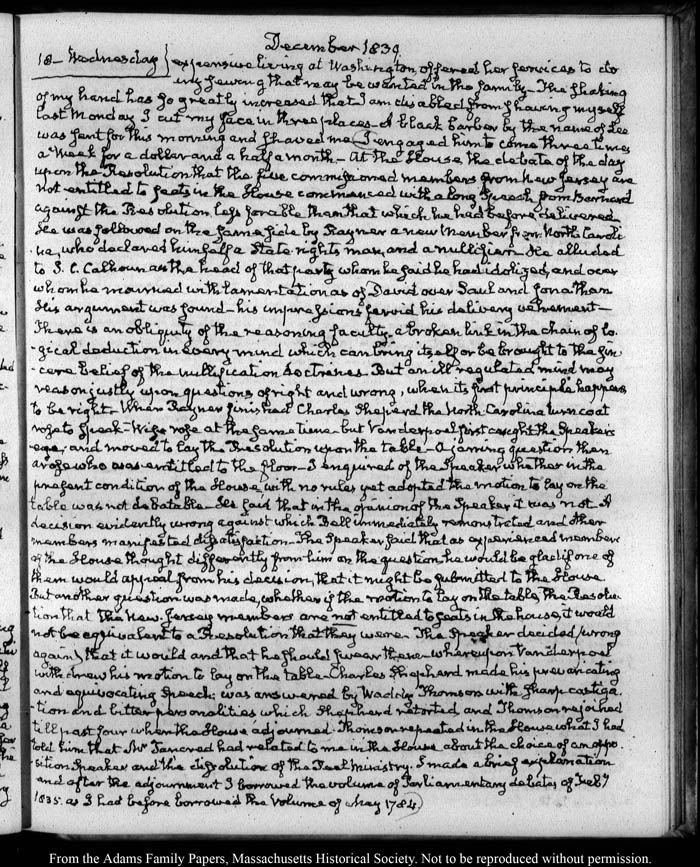 December 1839.
18— Wednesday } expensive living at Washington, offered her services to do
any sewing that may be wanted in the family— The shaking
of my hand has so greatly increased that I am disabled from shaving myself
last Monday I cut my face in three places— A black barber by the name of Lee
was sent for this morning and shaved me (I engaged him to come three times
a week for a dollar and a half a month— At the House, the debate of the day
upon the Resolution that the five commissioned members from New Jersey are
not entitled to seats in the House commenced with a long Speech from Barnard
against the Resolution, less forable than that which he had before delivered
He was followed on the same side by Rayner a new Member from North Caroli-
-na, who declared himself a State-rights man, and a nullifier. He alluded
to J. C. Calhoun as the head of that party whom he said he had idolized, and over
whom he mourned with lamentation as of David over Saul and Jonathan
His argument was sound— his impressions fervid his delivery vehement—
There is an obliquity of the reasoning faculty, a broken link in the chain of lo-
-gical deduction in every mind which can bring itself or be brought to the sin-
-cere belief of the nullification doctrines. But an ill regulated mind may
reason justly upon questions of right and wrong, when its first principle happens
to be right— When Rayner finished Charles Sheperd the North-Carolina turncoat
rose to speak— Wise rose at the same time— but Vanderpoel first caught the Speaker's
eye; and moved to lay the Resolution upon the table— A question then
arose who was entitled to the floor— I enquired of the Speaker whether in the
present condition of the House, with no rules yet adopted the motion to lay on the
table was not debatable— He said that in the opinion of the Speaker it was not— A
decision evidently wrong against which Bell immediately remonstrated and other
members manifested dissatisfaction— The Speaker said that as experienced members
of the House thought differently from him on the question he would be glad if one of
them would appeal from his decision, that it might be submitted to the House
But another question was made, whether if the motion to lay on the table, the Resolu-
tion that the New-Jersey members are not entitled to seats in the house, it would
not be equivalent to a Resolution that they were. The Speaker decided (wrong
again) that it would and that he should swear them— whereupon Vanderpoel
withdrew his motion to lay on the table— Charles Shepherd made his prevaricating
and equivocating Speech; was answered by Waddy Thomson with sharp castiga-
-tion and bitter personalities which Shepherd retorted, and Thomson rejoined
till past four when the House adjourned. Thomson repeated in the House what I had
told him that Mr Tancred had related to me in the House about the choice of an oppo-
sition Speaker and the dissolution of the Peel ministry. I made a brief explanation
and after the adjournment I borrowed the volume of Parliamentary debates of Feby
1835. as I had before borrowed the Volume of May 1784)
From the Adams Family Papers, Massachusetts Historical Society. Not to be reproduced without permission.